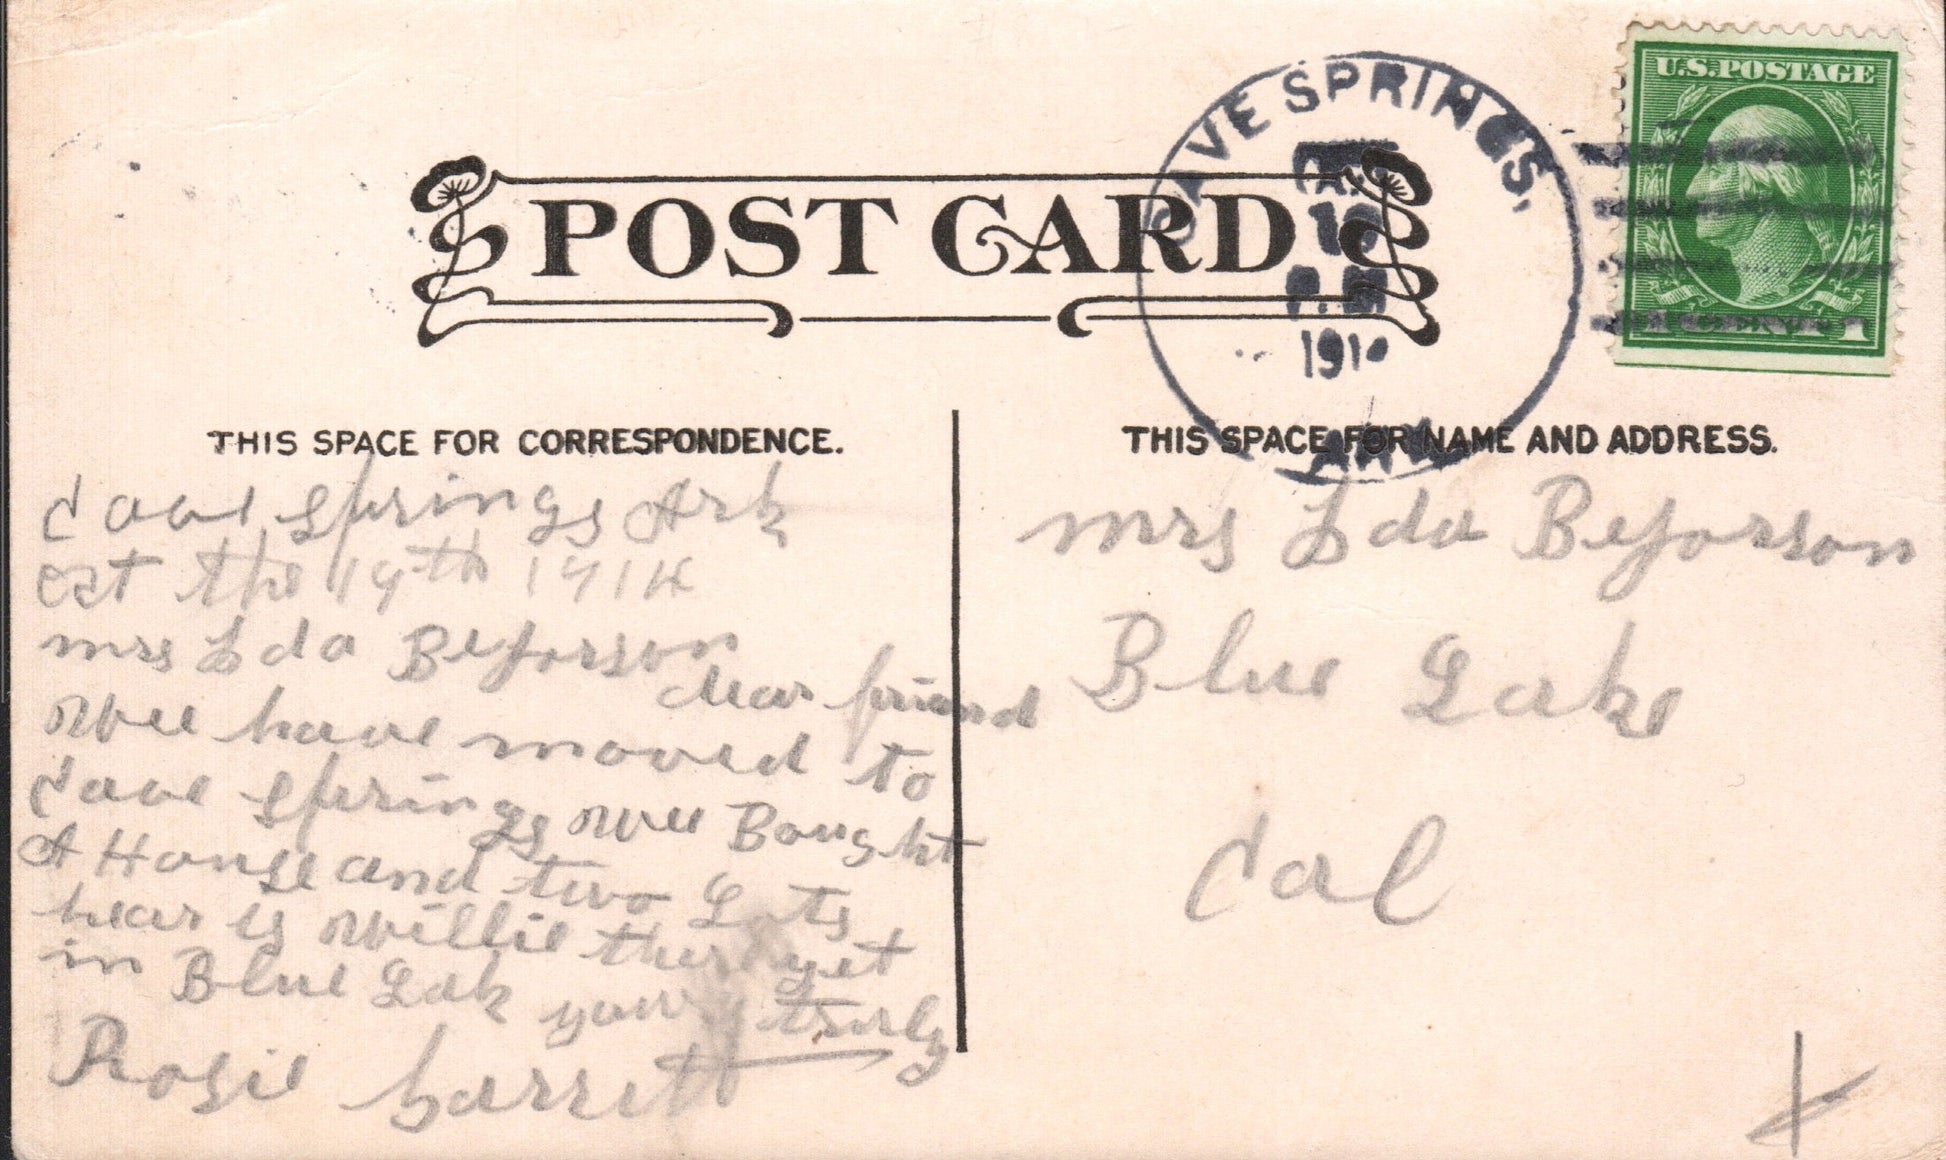 U.S. POSTAGE
1 CENT 1
CAVE SPRINGS,
19
P.M
1910
ARK
POST CARD
THIS SPACE FOR CORRESPONDENCE.
THIS SPACE FOR NAME AND ADDRESS.
Cave Springs Ark
Oct the 19th 191
mrs Ida Beyorson
dear friend
Wee have moved to
Cave Springs Wee Bought
A House and two Lots
hear is Willie there yet
in Blue Lak yours truly
Rosie barrett
mrs Ida Beyorson
Blue Lake
Cal